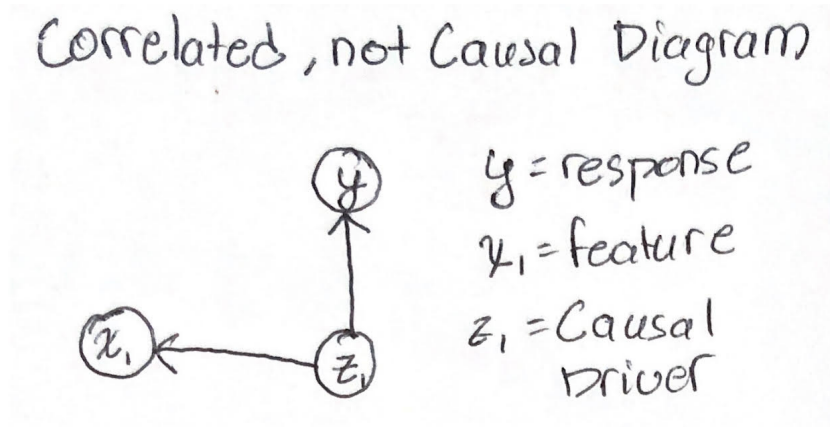 Correlated, not Causal Diagram
y
y = response
x₁ = feature
x₁
z₁
z₁ = Causal
Driver